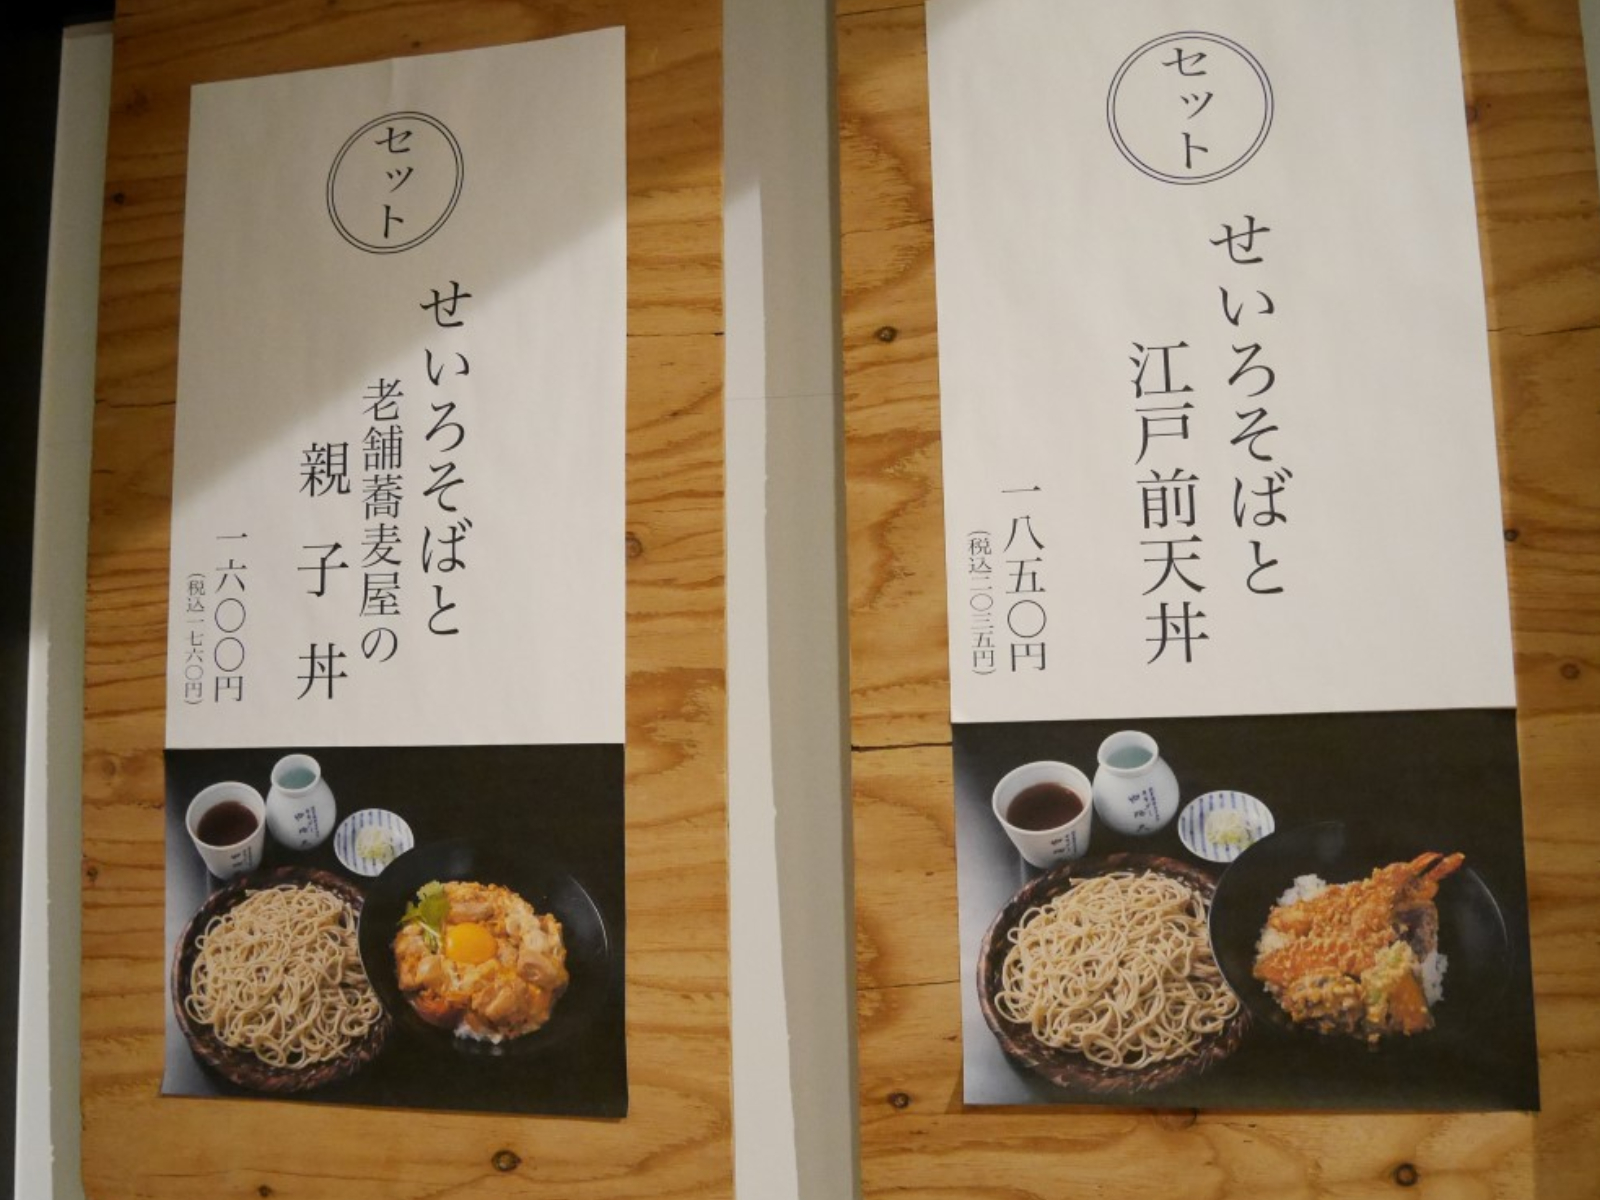 セット
せいろそばと
老舗蕎麦屋の
親子丼
一六〇〇円
(税込一七六〇円)
セット
せいろそばと
江戸前天丼
一八五〇円
(税込二〇三五円)